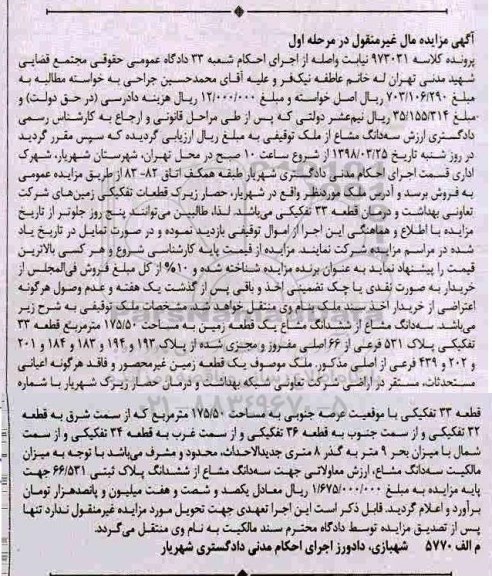 آگهی مزایده مال غیرمنقول در مرحله اول
پرونده کلاسه ۹۷۳۰۲۱ نیابت واصله از اجرای احکام شعبه ۳۳ دادگاه عمومی حقوقی مجتمع قضایی
شهید مدنی تهران له خانم عاطفه نیک‌فر و علیه آقای محمدحسین جراحی به خواسته مطالبه به
مبلغ ۷۰۳/۱۰۶/۲۹۰ ریال اصل خواسته و مبلغ ۱۲/۰۰۰/۰۰۰ ریال هزینه دادرسی (در حق دولت) و
مبلغ ۳۵/۱۵۵/۳۱۴ ریال نیم‌عشر دولتی که پس از طی مراحل قانونی و ارجاع به کارشناس رسمی
دادگستری ارزش سه‌دانگ مشاع از ملک توقیفی به مبلغ ریال ارزیابی گردیده که سپس مقرر گردید
در روز شنبه تاریخ ۱۳۹۸/۰۳/۲۵ از شروع ساعت ۱۰ صبح در محل تهران، شهرستان شهریار، شهرک
اداری قسمت اجرای احکام مدنی دادگستری شهریار طبقه همکف اتاق ۸۲- ۸۳ از طریق مزایده عمومی
به فروش برسد و آدرس ملک موردنظر واقع در شهریار، حصار زیرک قطعات تفکیکی زمین‌های شرکت
تعاونی بهداشت و درمان قطعه ۳۳ تفکیکی می‌باشد. لذا، طالبین می‌توانند پنج روز جلوتر از تاریخ
مزایده با اطلاع و هماهنگی این اجرا از اموال توقیفی بازدید نموده و در صورت تمایل در تاریخ یاد
شده در مراسم مزایده شرکت نمایند. مزایده از قیمت پایه کارشناسی شروع و هر کسی بالاترین
قیمت را پیشنهاد نماید به عنوان برنده مزایده شناخته شده و ۱۰% از کل مبلغ فروش فی‌المجلس از
خریدار به صورت نقدی یا چک تضمینی اخذ و باقی پس از گذشت یک هفته و عدم وصول هرگونه
اعتراضی از خریدار اخذ سند ملک به نام وی منتقل خواهد شد مشخصات ملک توقیفی به شرح زیر
می‌باشد. سه‌دانگ مشاع از ششدانگ مشاع یک قطعه زمین به مساحت ۱۷۵/۵۰ مترمربع قطعه ۳۳
تفکیکی پلاک ۵۳۱ فرعی از ۶۶ اصلی مفروز و مجزی شده از پلاک ۱۹۳ و ۱۹۴ و ۱۸۳ و ۱۸۴ و ۲۰۱
و ۲۰۲ و ۴۳۹ فرعی از اصلی مذکور. ملک موصوف یک قطعه زمین غیرمحصور و فاقد هرگونه اعیانی
مستحدثات، مستقر در اراضی شرکت تعاونی شبکه بهداشت و درمان حصار زیرک شهریار با شماره
قطعه ۳۳ تفکیکی با موقعیت عرصه جنوبی به مساحت ۱۷۵/۵۰ مترمربع که از سمت شرق به قطعه
۳۲ تفکیکی و از سمت جنوب به قطعه ۳۶ تفکیکی و از سمت غرب به قطعه ۳۴ تفکیکی و از سمت
شمال با میزان بحر ۹ متر به گذر ۸ متری جدیدالاحداث، محدود و مشرف می‌باشد با توجه به میزان
مالکیت سه‌دانگ مشاع، ارزش معاولاتی جهت سه‌دانگ مشاع از ششدانگ پلاک ثبتی ۶۶/۵۳۱ جهت
پایه مزایده به مبلغ ۱/۶۷۵/۰۰۰/۰۰۰ ریال معادل یکصد و شصت و هفت میلیون و پانصدهزار تومان
برآورد و اعلام گردید. قابل ذکر است این اجرا تعهدی جهت تحویل مورد مزایده غیرمنقول ندارد تنها
پس از تصدیق مزایده توسط دادگاه محترم سند مالکیت به نام وی منتقل می‌گردد.
م الف ۵۷۷۰ شهبازی، دادورز اجرای احکام مدنی دادگستری شهریار
ParsNamadData
۰۲۱-۸۸۳۴۹۶۷۰-۵